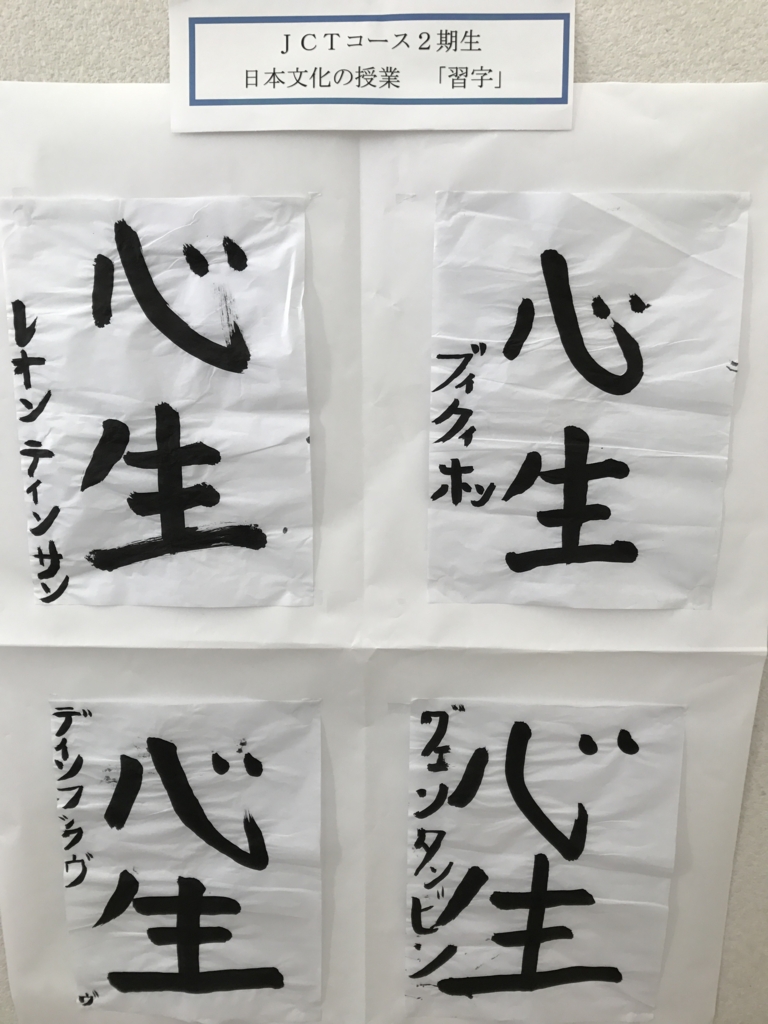 JCTコース2期生
日本文化の授業 「習字」
心生
レオン ティン サン
心生
ブィ クィ ホン
心生
心生
グェン タン ビン